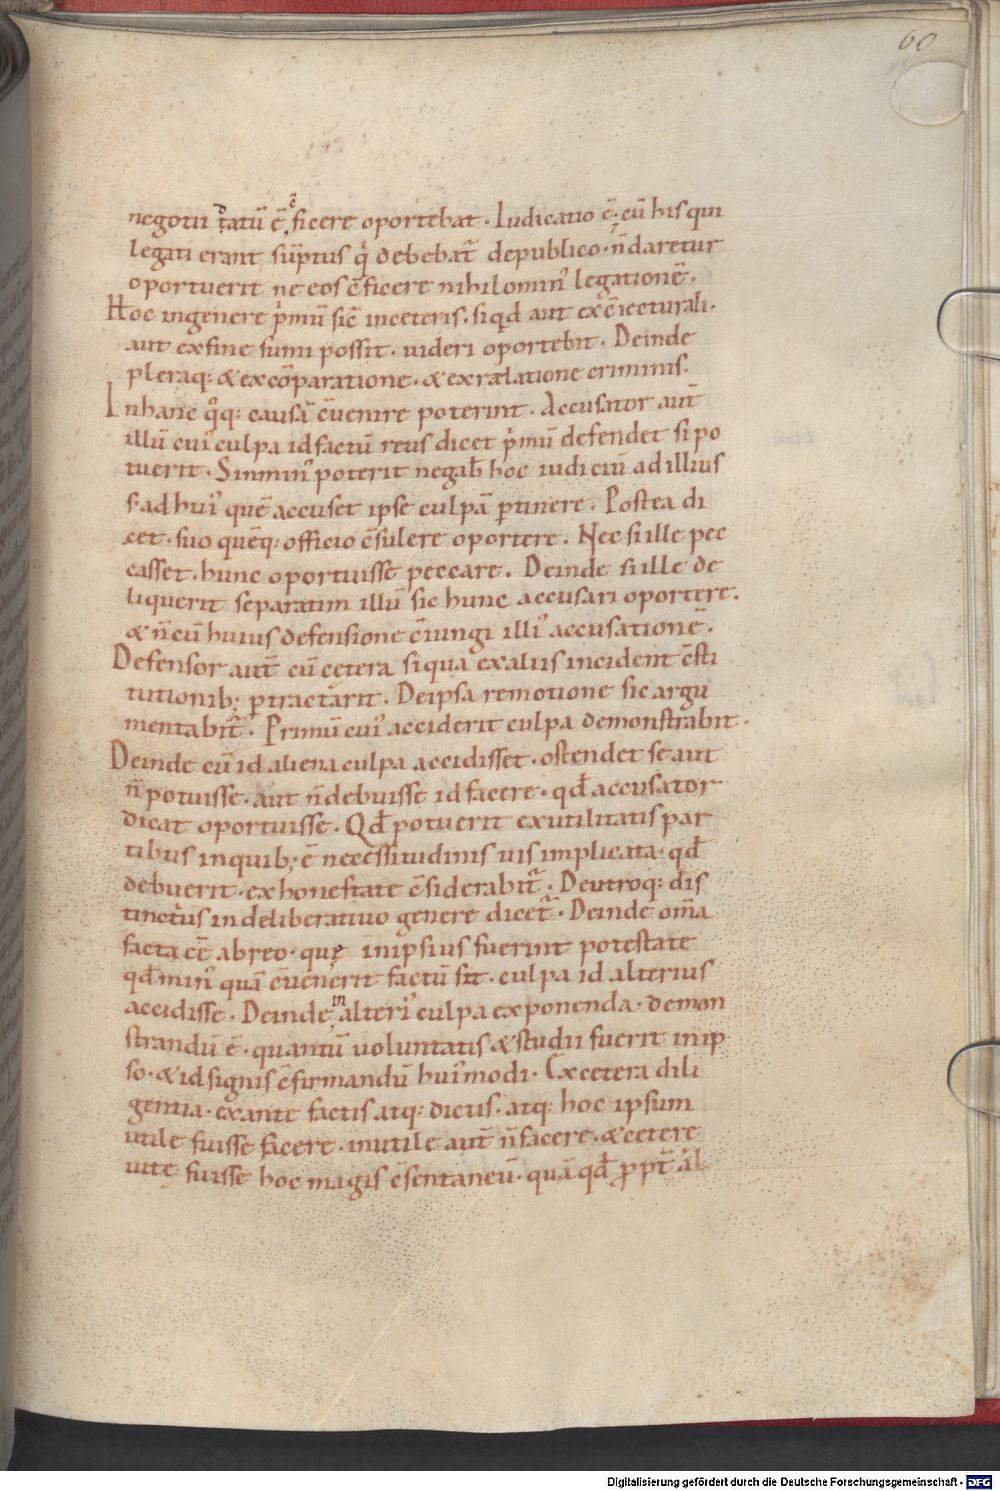 60
negotii datū ē c̄ficere oportebat. Iudicatio ē. cū his qui
legati erant sūptus q̇ debebat᷑ depublico. n̄ daretur
oportuerit ne eos c̄ficere nihilomin᷒ legationē.
Hoc ingenere p̓mū sic̄ inceteris. siqd aut exc̄iecturali.
aut exfine sumi possit. uideri oportebit. Deinde
pleraq; & excōparatione. & exrælatione criminis.
Inhanc q̊q; causā c̄uenire poterint. Accusator aut̄
illū cui᷒ culpa id factū reus dicet p̓mū defendet si po
tuerit. Sinmin᷒ poterit negab̄ hoc iudiciū ad illius
s; ad hui᷒ quē accuset ipse culpā ꝑtinere. Postea di
cet. suo quēq; officio c̄sulere oportere. Nec si ille pec
casset. hunc oportuisse peccare. Deinde si ille de
liquerit separatim illū sic hunc accusari oportere.
& n̄ cū huius defensione c̄iungi illi᷒ accusationē.
Defensor aut̄ cū cetera siqua exaliis incident c̄sti
tutionib; ꝑtractarit. Deipsa remotione sic argu
mentabit᷑. Primū cui᷒ acciderit culpa demonstrabit.
Deinde cū id aliena culpa accidisset. ostendet se aut
n̄ potuisse. aut n̄ debuisse id facere. qd̄ accusator
dicat oportuisse. Qd̄ potuerit exutilitatis par
tibus inquib; ē necessitudinis uis implicata. qd̄
debuerit. ex honestate c̄siderabit᷑. Deutroq; dis
tinctius indeliberatiuo genere dicet᷑. Deinde om̄a
facta eē abreo. quę inipsius fuerint potestate
qd̄ min᷒ quā c̄uenerit factū sit. culpa id alterius
accidisse. Deinde in alteri᷒ culpa exponenda. demon
strandū ē. quantū uoluntatis & studii fuerit inip
so. & id signis c̄firmandū hui᷒modi. Ex cetera dili
gentia. ex ante factis atq; dictis. atq; hoc ipsum
utile fuisse facere. inutile aut̄ n̄ facere. & cetere
uite fuisse hoc magis c̄sentaneū. quā qd̄ ꝓpt̄ al
Digitalisierung gefördert durch die Deutsche Forschungsgemeinschaft - DFG